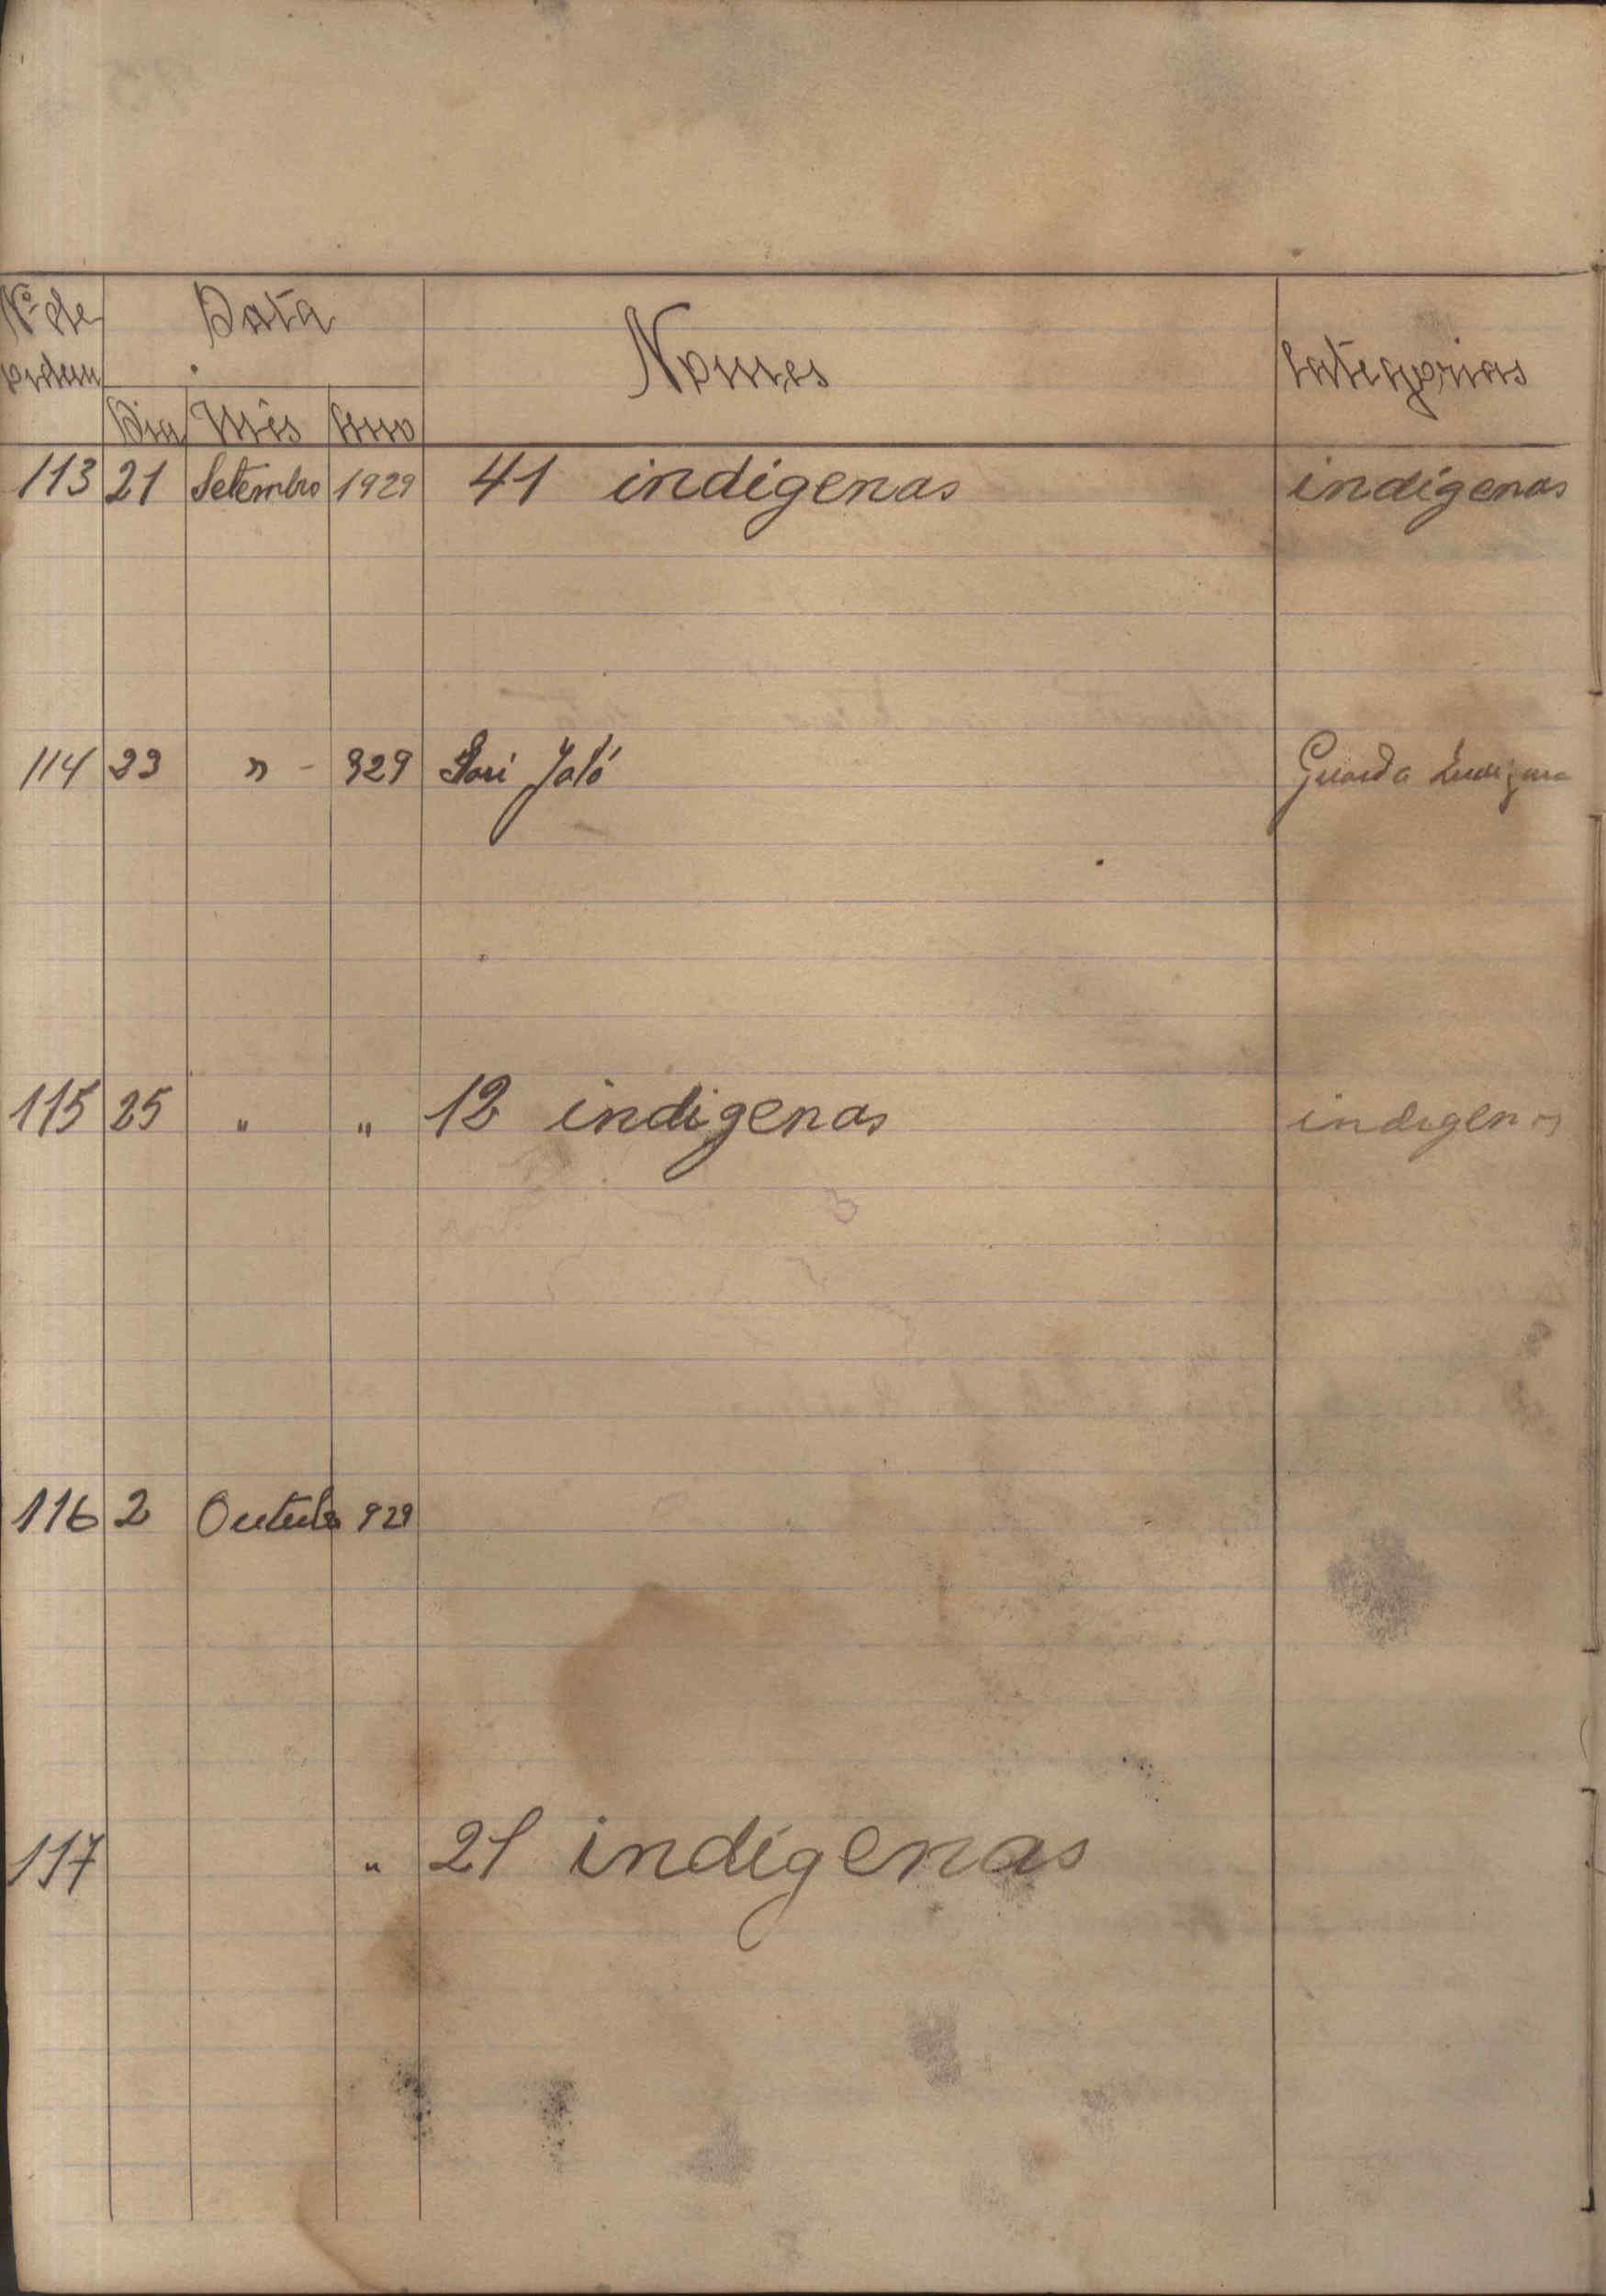 Nº de Data Nomes Categorias
ordem
Dia Mês Ano
113 21 Setembro 1929 41 indígenas indígenas
114 23 " - 929 Sori Jaló Guarda Indigena
115 25 " " 12 indigenas indigenas
116 2 Outubro 929
117 " 21 indígenas